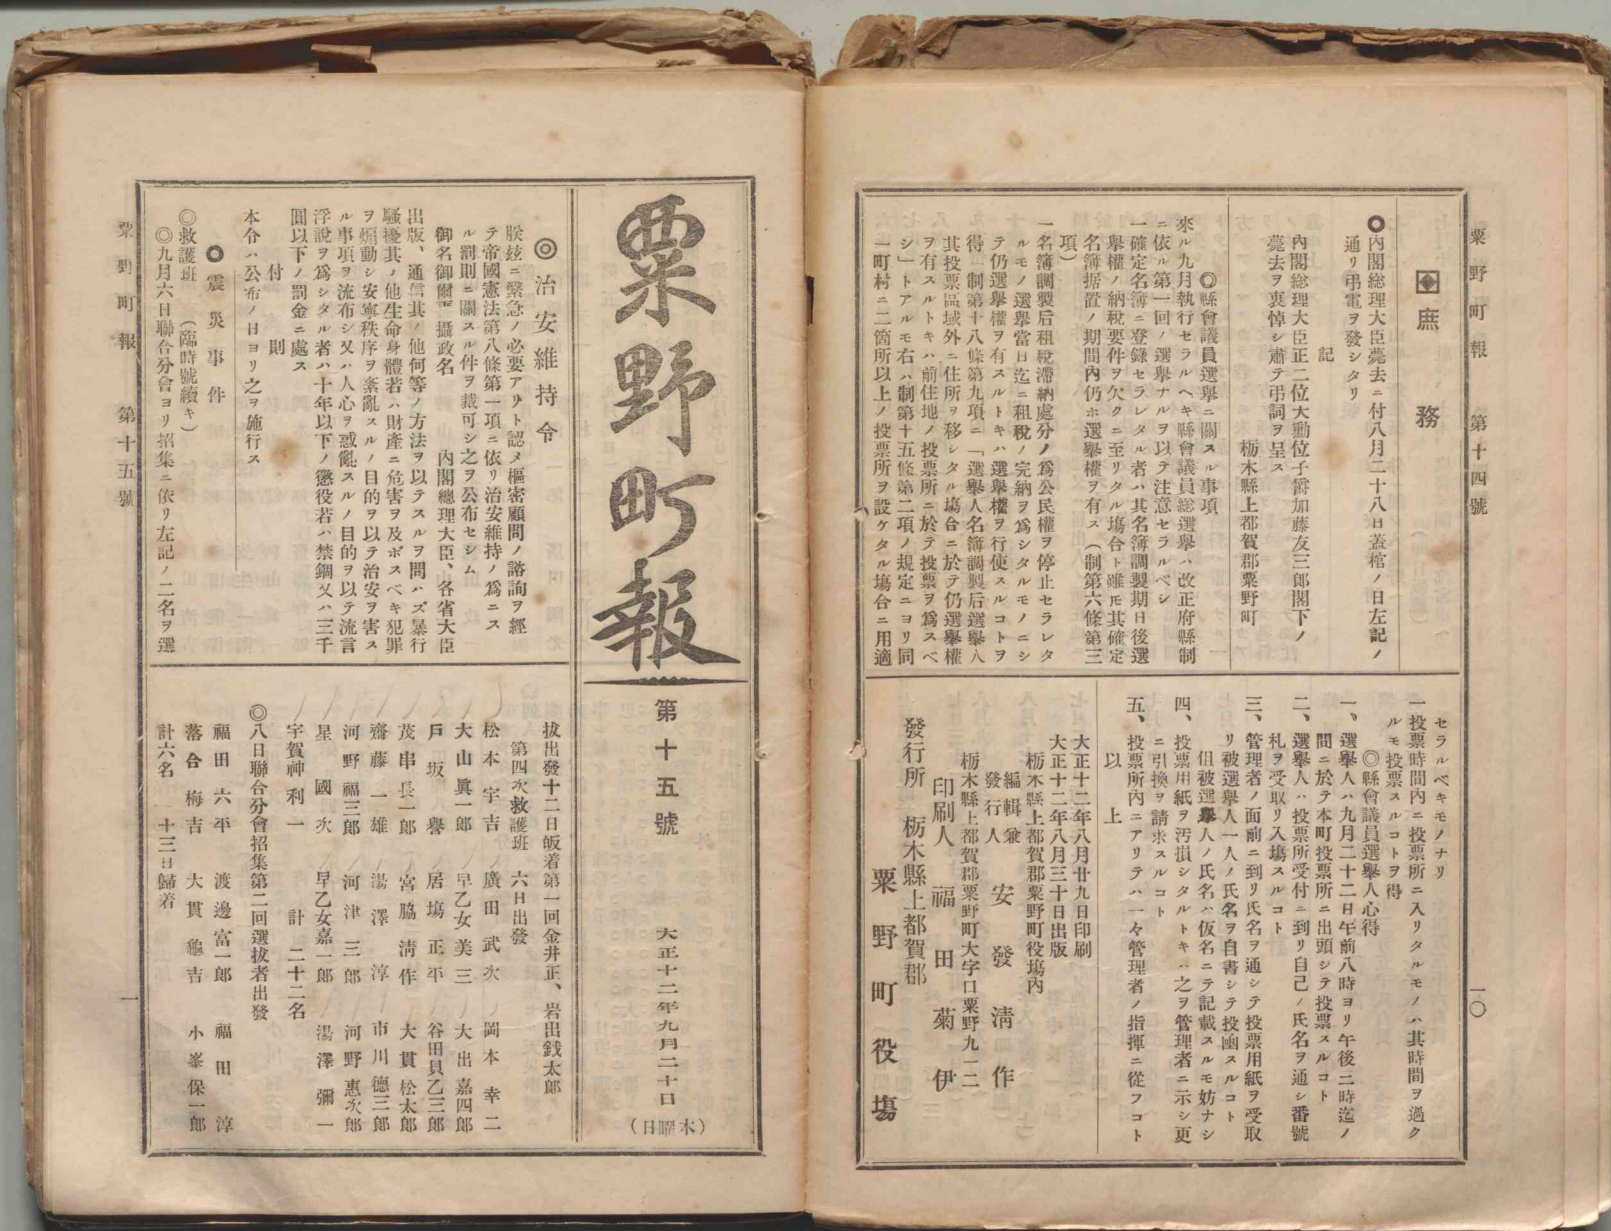 粟野町報 第十四號
一〇
庶務
內閣総理大臣薨去ニ付八月二十八日蓋棺ノ日左記ノ
通リ弔電ヲ發シタリ
記
內閣総理大臣正二位大勳位子爵加藤友三郎閣下ノ
薨去ヲ哀悼シ肅テ弔詞ヲ呈ス
栃木縣上都賀郡粟野町
◎縣會議員選擧ニ關スル事項
來ル九月執行セラルヘキ縣會議員総選擧ハ改正府縣制
ニ依ル第一回ノ選擧ナルヲ以テ注意セラルベシ
一確定名簿ニ登錄セラレタル者ハ其名簿調製期日後選
擧權ノ納稅要件ヲ欠クニ至リタル塲合ト雖モ其確定
名簿据置ノ期間內仍ホ選擧權ヲ有ス(制第六條第三
項)
一名簿調製后租稅滯納處分ノ爲公民權ヲ停止セラレタ
ルモノ選擧當日迄ニ租稅ノ完納ヲ爲シタルモノニシ
テ仍選擧權ヲ有スルトキハ選擧權ヲ行使スルコトヲ
得一制第十八條第九項ニ「選擧人名簿調製后選擧人
其投票區域外ニ住所ヲ移シタル塲合ニ於テ仍選擧權
ヲ有スルトキハ前住地ノ投票所ニ於テ投票ヲ爲スベ
シ」トアルモ右ハ制第十五條第二項ノ規定ニヨリ同
一町村ニ二箇所以上ノ投票所ヲ設ケタル塲合ニ用適
セラルベキモノナリ
一投票時間內ニ投票所ニ入リタルモノハ其時間ヲ過ク
ルモ投票スルコトヲ得
◎縣會議員選擧人心得
一、選擧人ハ九月二十二日午前八時ヨリ午後三時迄ノ
間ニ於テ本町投票所ニ出頭シテ投票スルコト
二、選擧人ハ投票所受付ニ到リ自己ノ氏名ヲ通シ番號
札ヲ受取リ入塲スルコト
三、管理者ノ面前ニ到リ氏名ヲ通シテ投票用紙ヲ受取
リ被選擧人一人ノ氏名ヲ自書シテ投凾スルコト
但被選擧人ノ氏名ハ仮名ニテ記載スルモ妨ナシ
四、投票用紙ヲ汚損シタルトキハ之ヲ管理者ニ示シ更
ニ引換ヲ請求スルコト
五、投票所內ニアリテハ一々管理者ノ指揮ニ從フコト
以上
大正十二年八月廿九日印刷
大正十二年八月三十日出版
栃木縣上都賀郡粟野町役塲內
編輯兼發行人 安發淸作
栃木縣上都賀郡粟野町大字口粟野九一二
印刷人 福田菊伊
發行所 栃木縣上都賀郡
粟野町役塲
粟野町報
第十五號
大正十二年九月二十日
(木曜日)
◎治安維持令
朕玆ニ緊急ノ必要アリト認メ樞密顧問ノ諮詢ヲ經
テ帝國憲法第八條第一項ニ依リ治安維持ノ爲ニス
ル罰則ニ關スル件ヲ裁可シ之ヲ公布セシム
御名御璽 攝政名 內閣總理大臣、各省大臣
出版、通信其ノ他何等ノ方法ヲ以テスルヲ問ハズ暴行
騷擾其ノ他生命身體若ハ財產ニ危害ヲ及ボスベキ犯罪
ヲ煽動シ安寧秩序ヲ紊亂スルノ目的ヲ以テ治安ヲ害ス
ル事項ヲ流布シ又ハ人心ヲ惑亂スルノ目的ヲ以テ流言
浮說ヲ爲シタル者ハ十年以下ノ懲役若ハ禁錮又ハ三千
圓以下ノ罰金ニ處ス
付則
本令ハ公布ノ日ヨリ之ヲ施行ス
震災事件
◎救護班 (臨時號續キ)
◎九月六日聯合分會ヨリ招集ニ依リ左記ノ二名ヲ選
拔出發十二日皈着第一回金井正、岩出銭太郎
第四次救護班 六日出發
松本宇吉 廣田武次 岡本幸二
大山眞一郎 早乙女美三 大出嘉四郎
戶坂譽 居塲正平 谷田貝乙三郎
茂串長一郎 宮脇淸作 大貫松太郎
齋藤一雄 湯澤淳 市川德三郎
河野福三郎 河津三郎 河野惠次郎
星國次 早乙女嘉一郎 湯澤彌一
宇賀神利一 計二十二名
◎八日聯合分會招集第二回選拔者出發
福田六平 渡邊富一郎 福田淳
落合梅吉 大貫龜吉 小峯保一郎
計六名 十三日歸着
粟野町報 第十五號
一